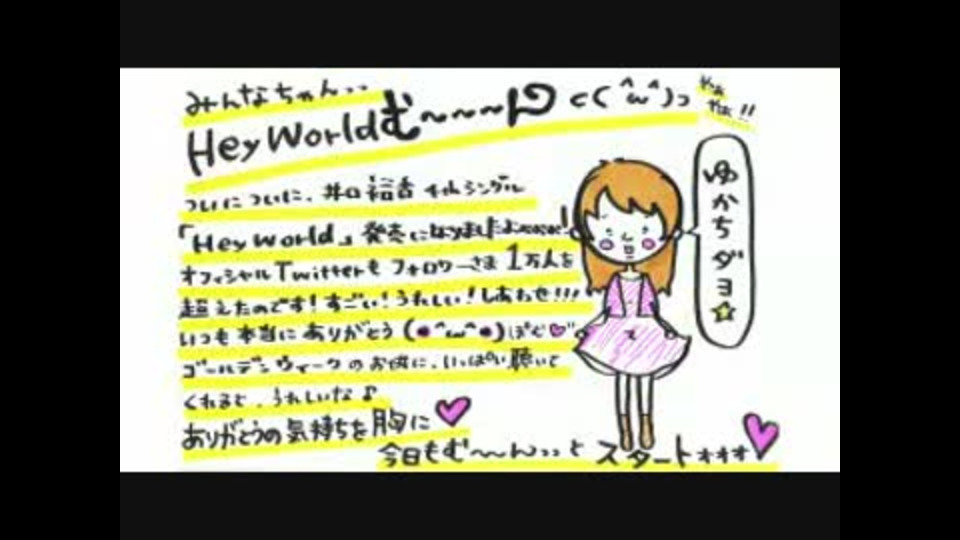 みんなちゃん、、
Hey Worldむ〜〜〜ん ⊂( ^ω^)⊃
やぁ
やぁ!!
ついについに、井口裕香 4thシングル
「Hey World」発売になりましたよ
オフィシャルTwitterも フォロワーさま 1万人を
超えたのです!すごい!うれしい!しあわせ!!!
いつも本当に ありがとう (●^ω^●) ぽぐ♡
ゴールデンウィークの お供に、いっぱい聴いて
くれると、うれしいな♪
ありがとうの気持ちを胸に♥
今日もむ〜〜んっっと スタートォォォ♥
ゆかちダヨ☆